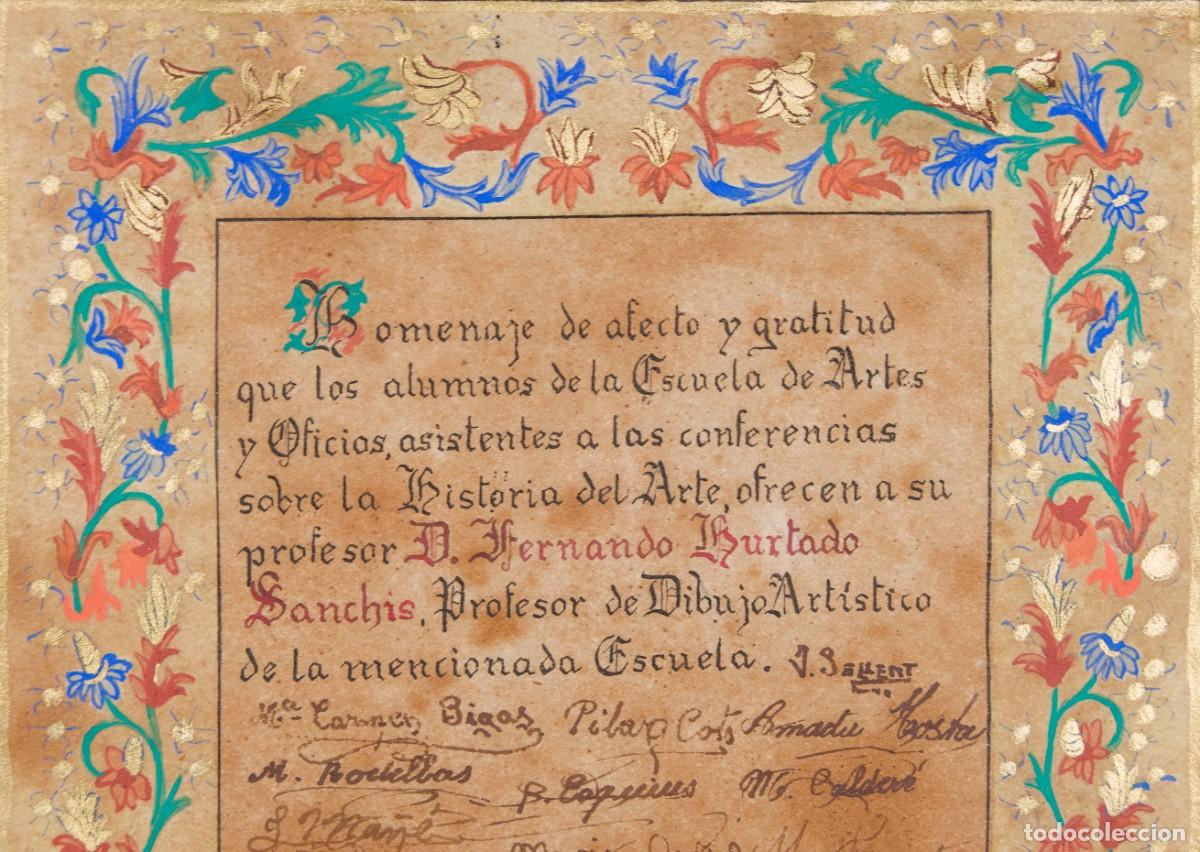 Homenaje de afecto y gratitud
que los alumnos de la Escuela de Artes
y Oficios, asistentes a las conferencias
sobre la Historia del Arte, ofrecen a su
profesor D. Fernando Hurtado
Sanchis, Profesor de Dibujo Artístico
de la mencionada Escuela. J. Sellent
Mª Carmen Bigas Pilar Cots Amadu
M. Rodellas
todocoleccion